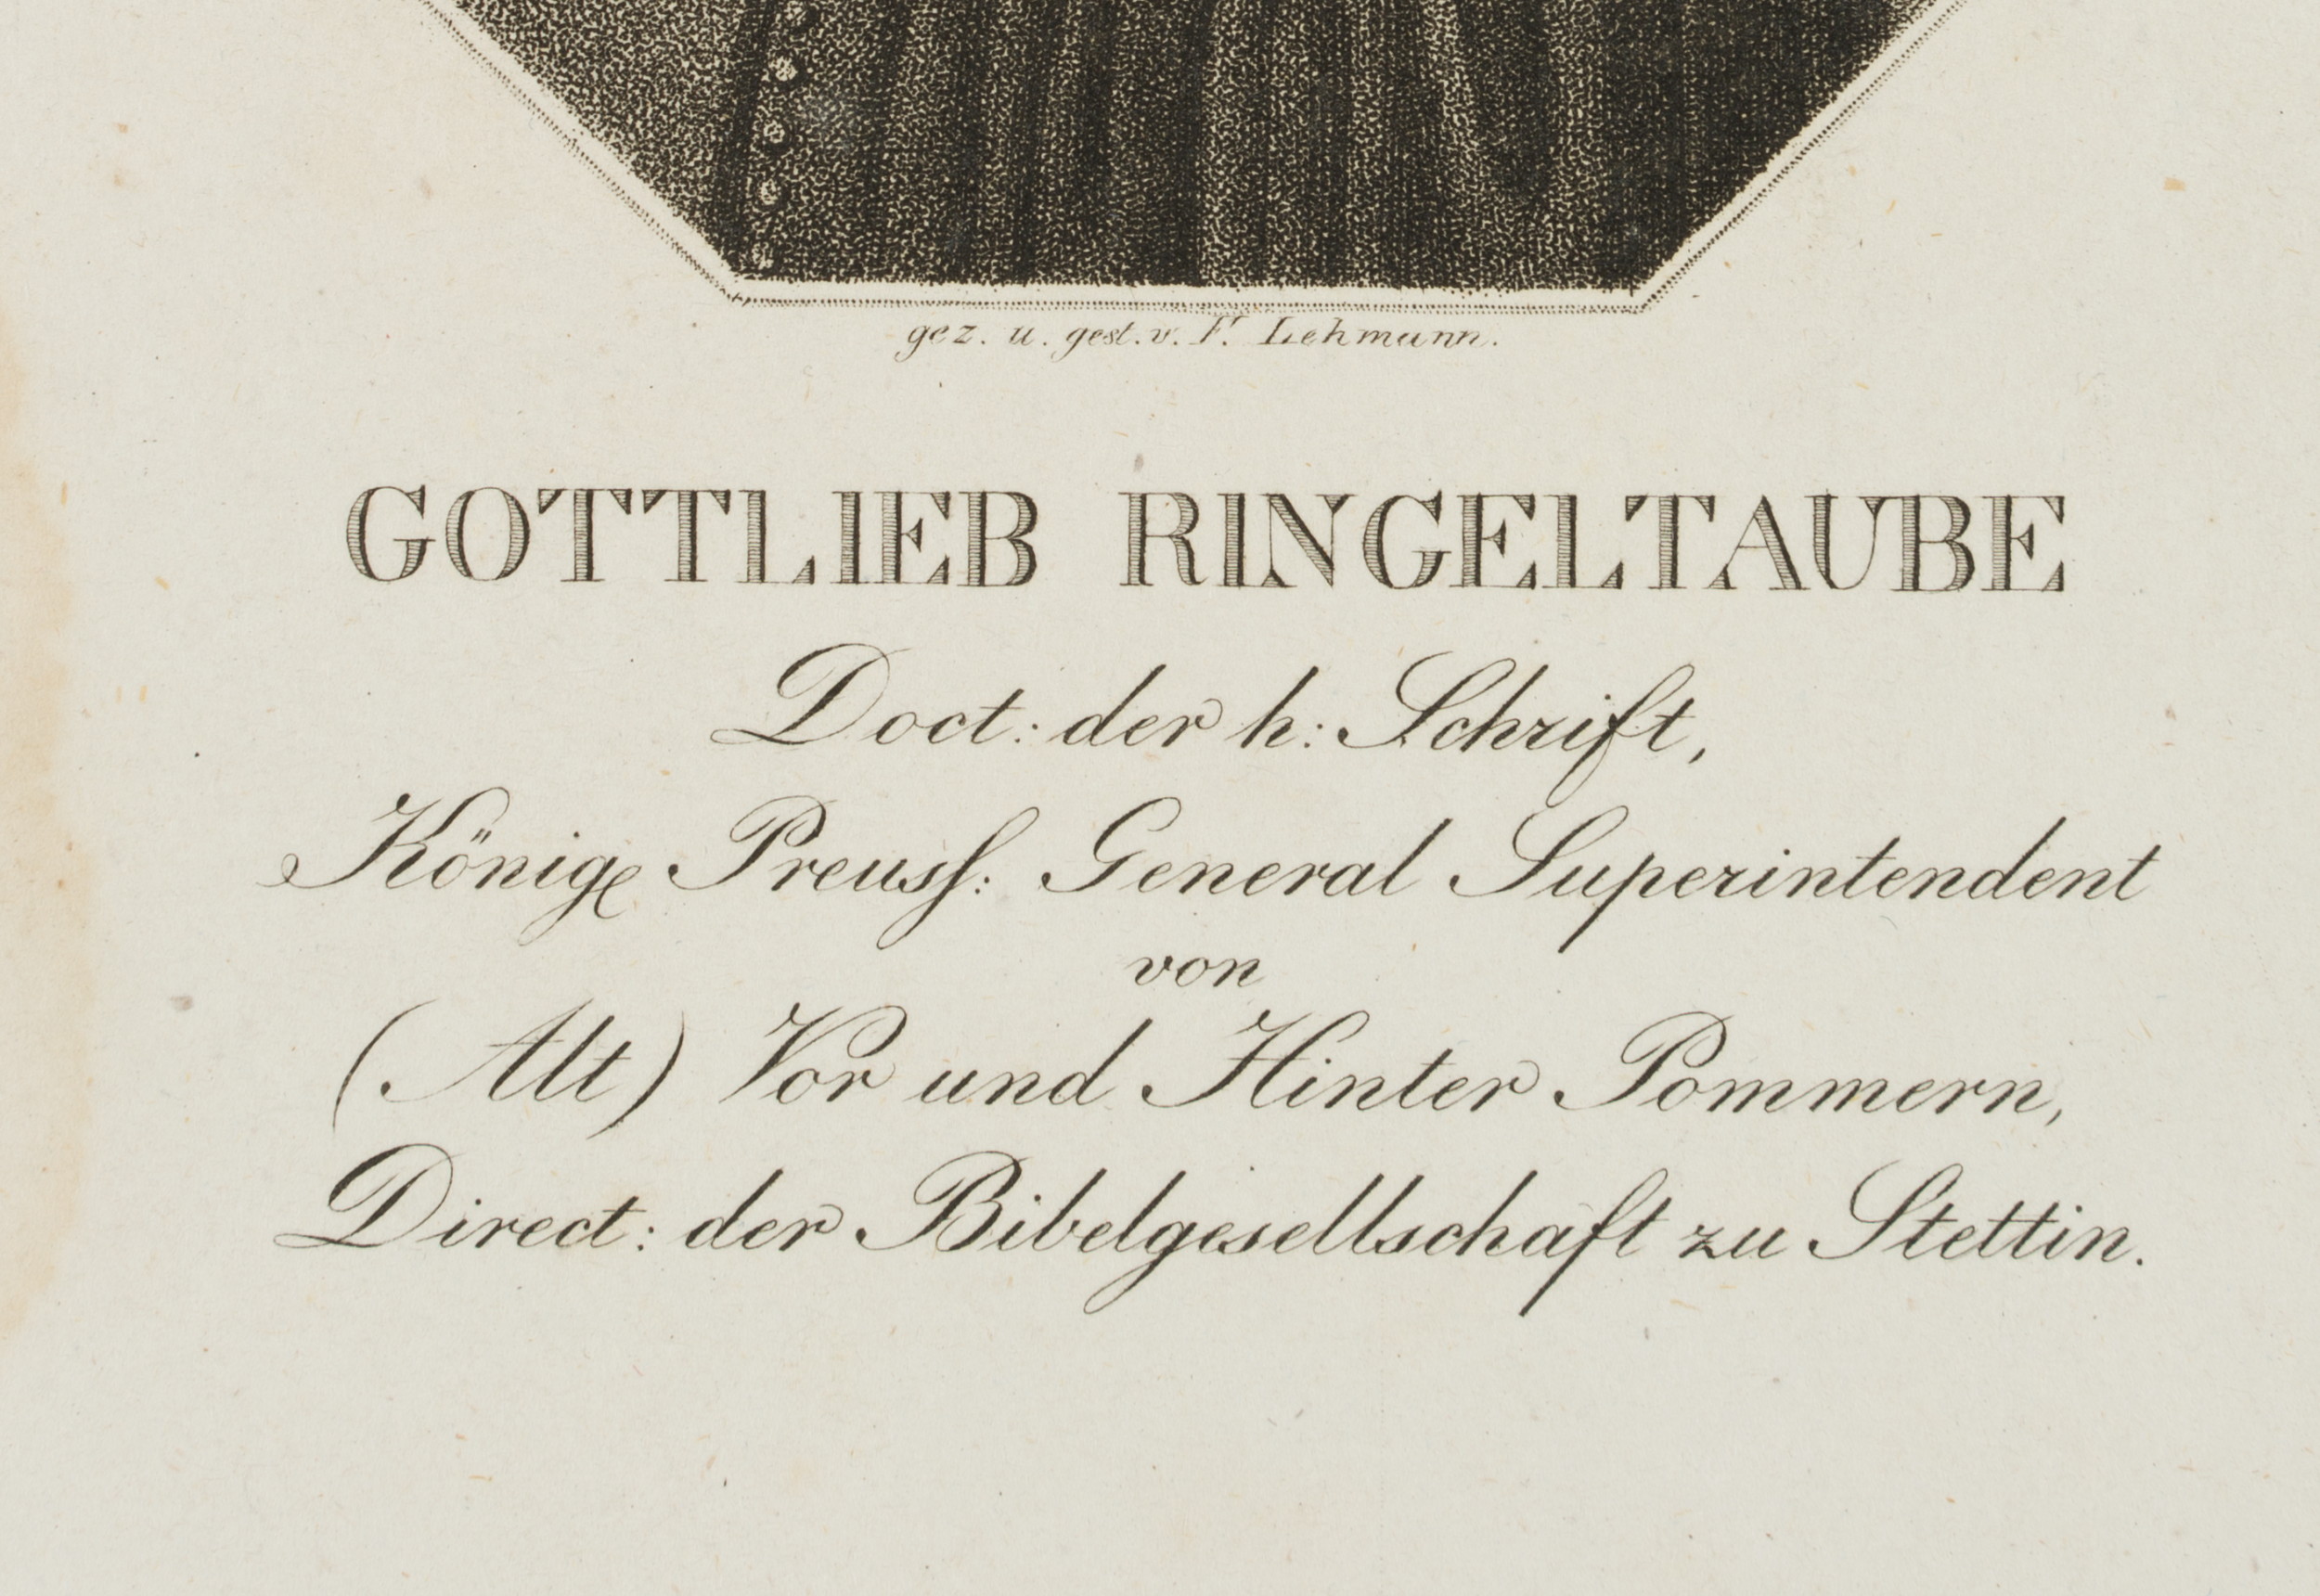 gez. u. gest. v. F. Lehmann.
GOTTLIEB RINGELTAUBE
Doct: der h: Schrift,
Königl Preuss: General Superintendent
von
(Alt) Vor und Hinter Pommern,
Direct: der Bibelgesellschaft zu Stettin.